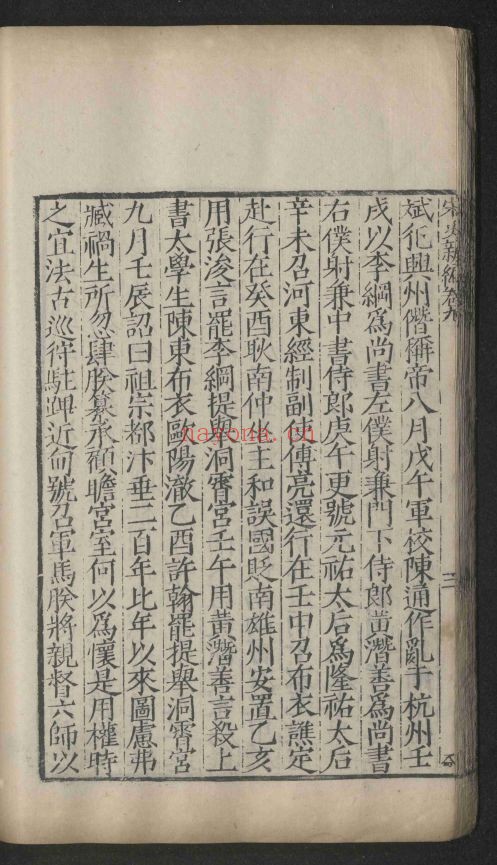 宋史新編卷九
斌犯興州僭稱帝八月戊午軍校陳通作亂于杭州壬
戌以李綱爲尚書左僕射兼門下侍郎黃潛善爲尚書
右僕射兼中書侍郎庚午更號元祐太后爲隆祐太后
辛未召河東經制副使傅亮還行在壬申召布衣譙定
赴行在癸酉耿南仲主和誤國貶南雄州安置乙亥
用張浚言罷李綱提舉洞霄宮壬午用黃潛善言殺上
書太學生陳東布衣歐陽澈乙酉許翰罷提舉洞霄宮
九月壬辰詔曰祖宗都汴垂二百年比年以來圖慮弗
臧禍生所忽肆朕纂承顧瞻宮室何以爲懷是用權時
之宜法古巡狩駐蹕近甸號召軍馬朕將親督六師以
三
nayona.cn